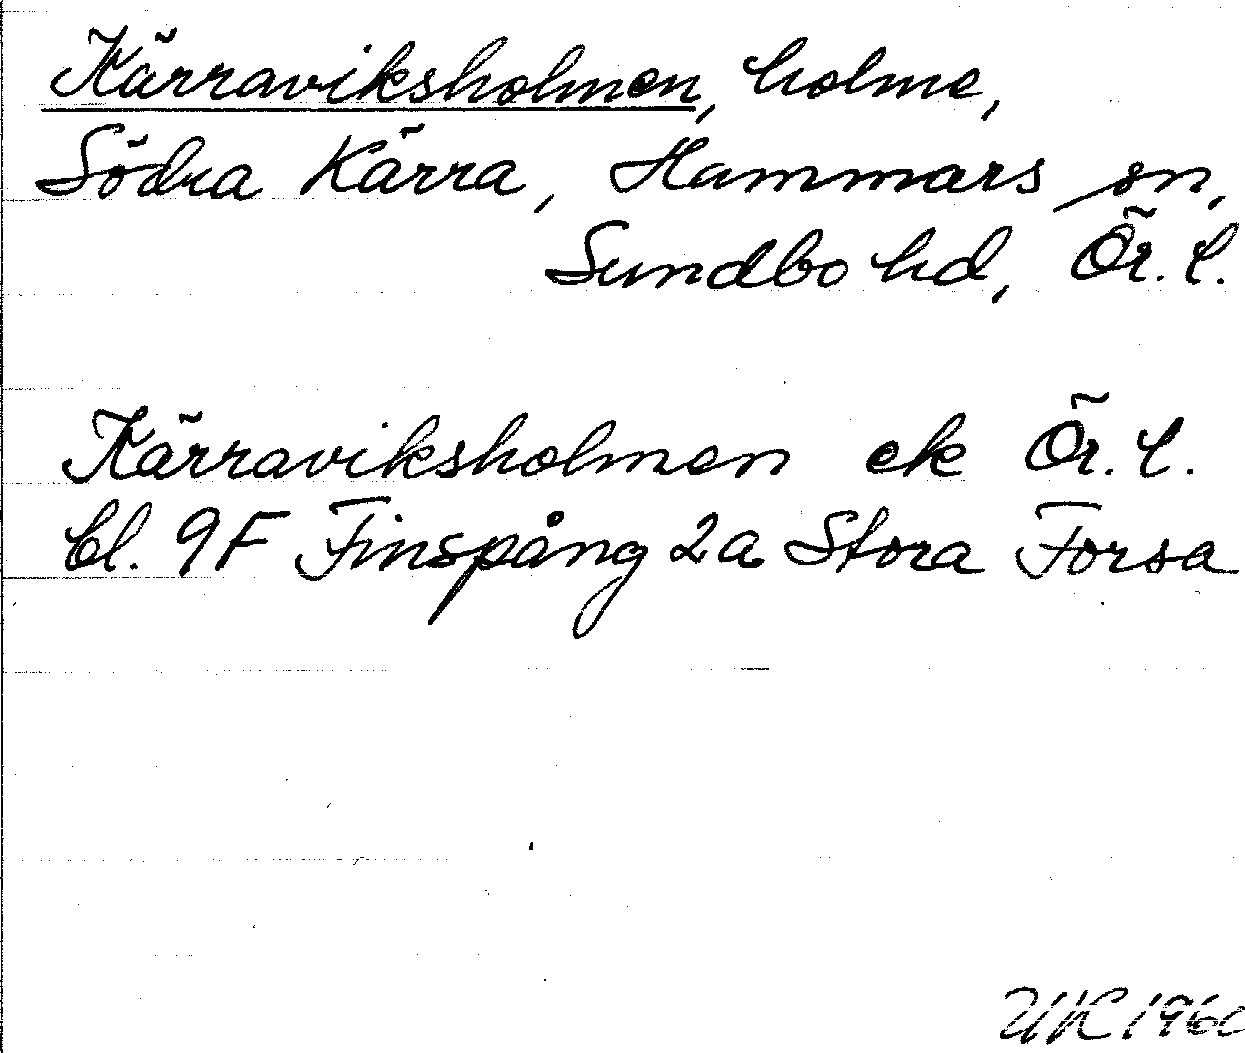 Kärraviksholmen, holme,
Södra Kärra, Hammars sn,
Sundbo hd, Ör. l.
Kärraviksholmen ek Ör. l.
bl. 9F Finspång 2a Stora Forsa